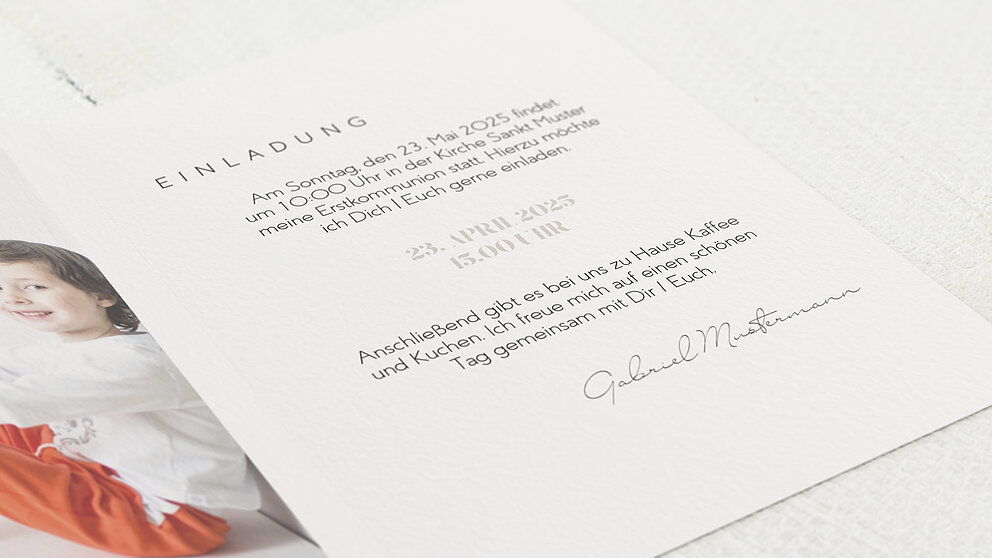 EINLADUNG
Am Sonntag, den 23. Mai 2025 findet
um 10:00 Uhr in der Kirche Sankt Muster
meine Erstkommunion statt. Hierzu möchte
ich Dich | Euch gerne einladen.
23. APRIL 2025
15.00 UHR
Anschließend gibt es bei uns zu Hause Kaffee
und Kuchen. Ich freue mich auf einen schönen
Tag gemeinsam mit Dir | Euch.
Gabriel Mustermann